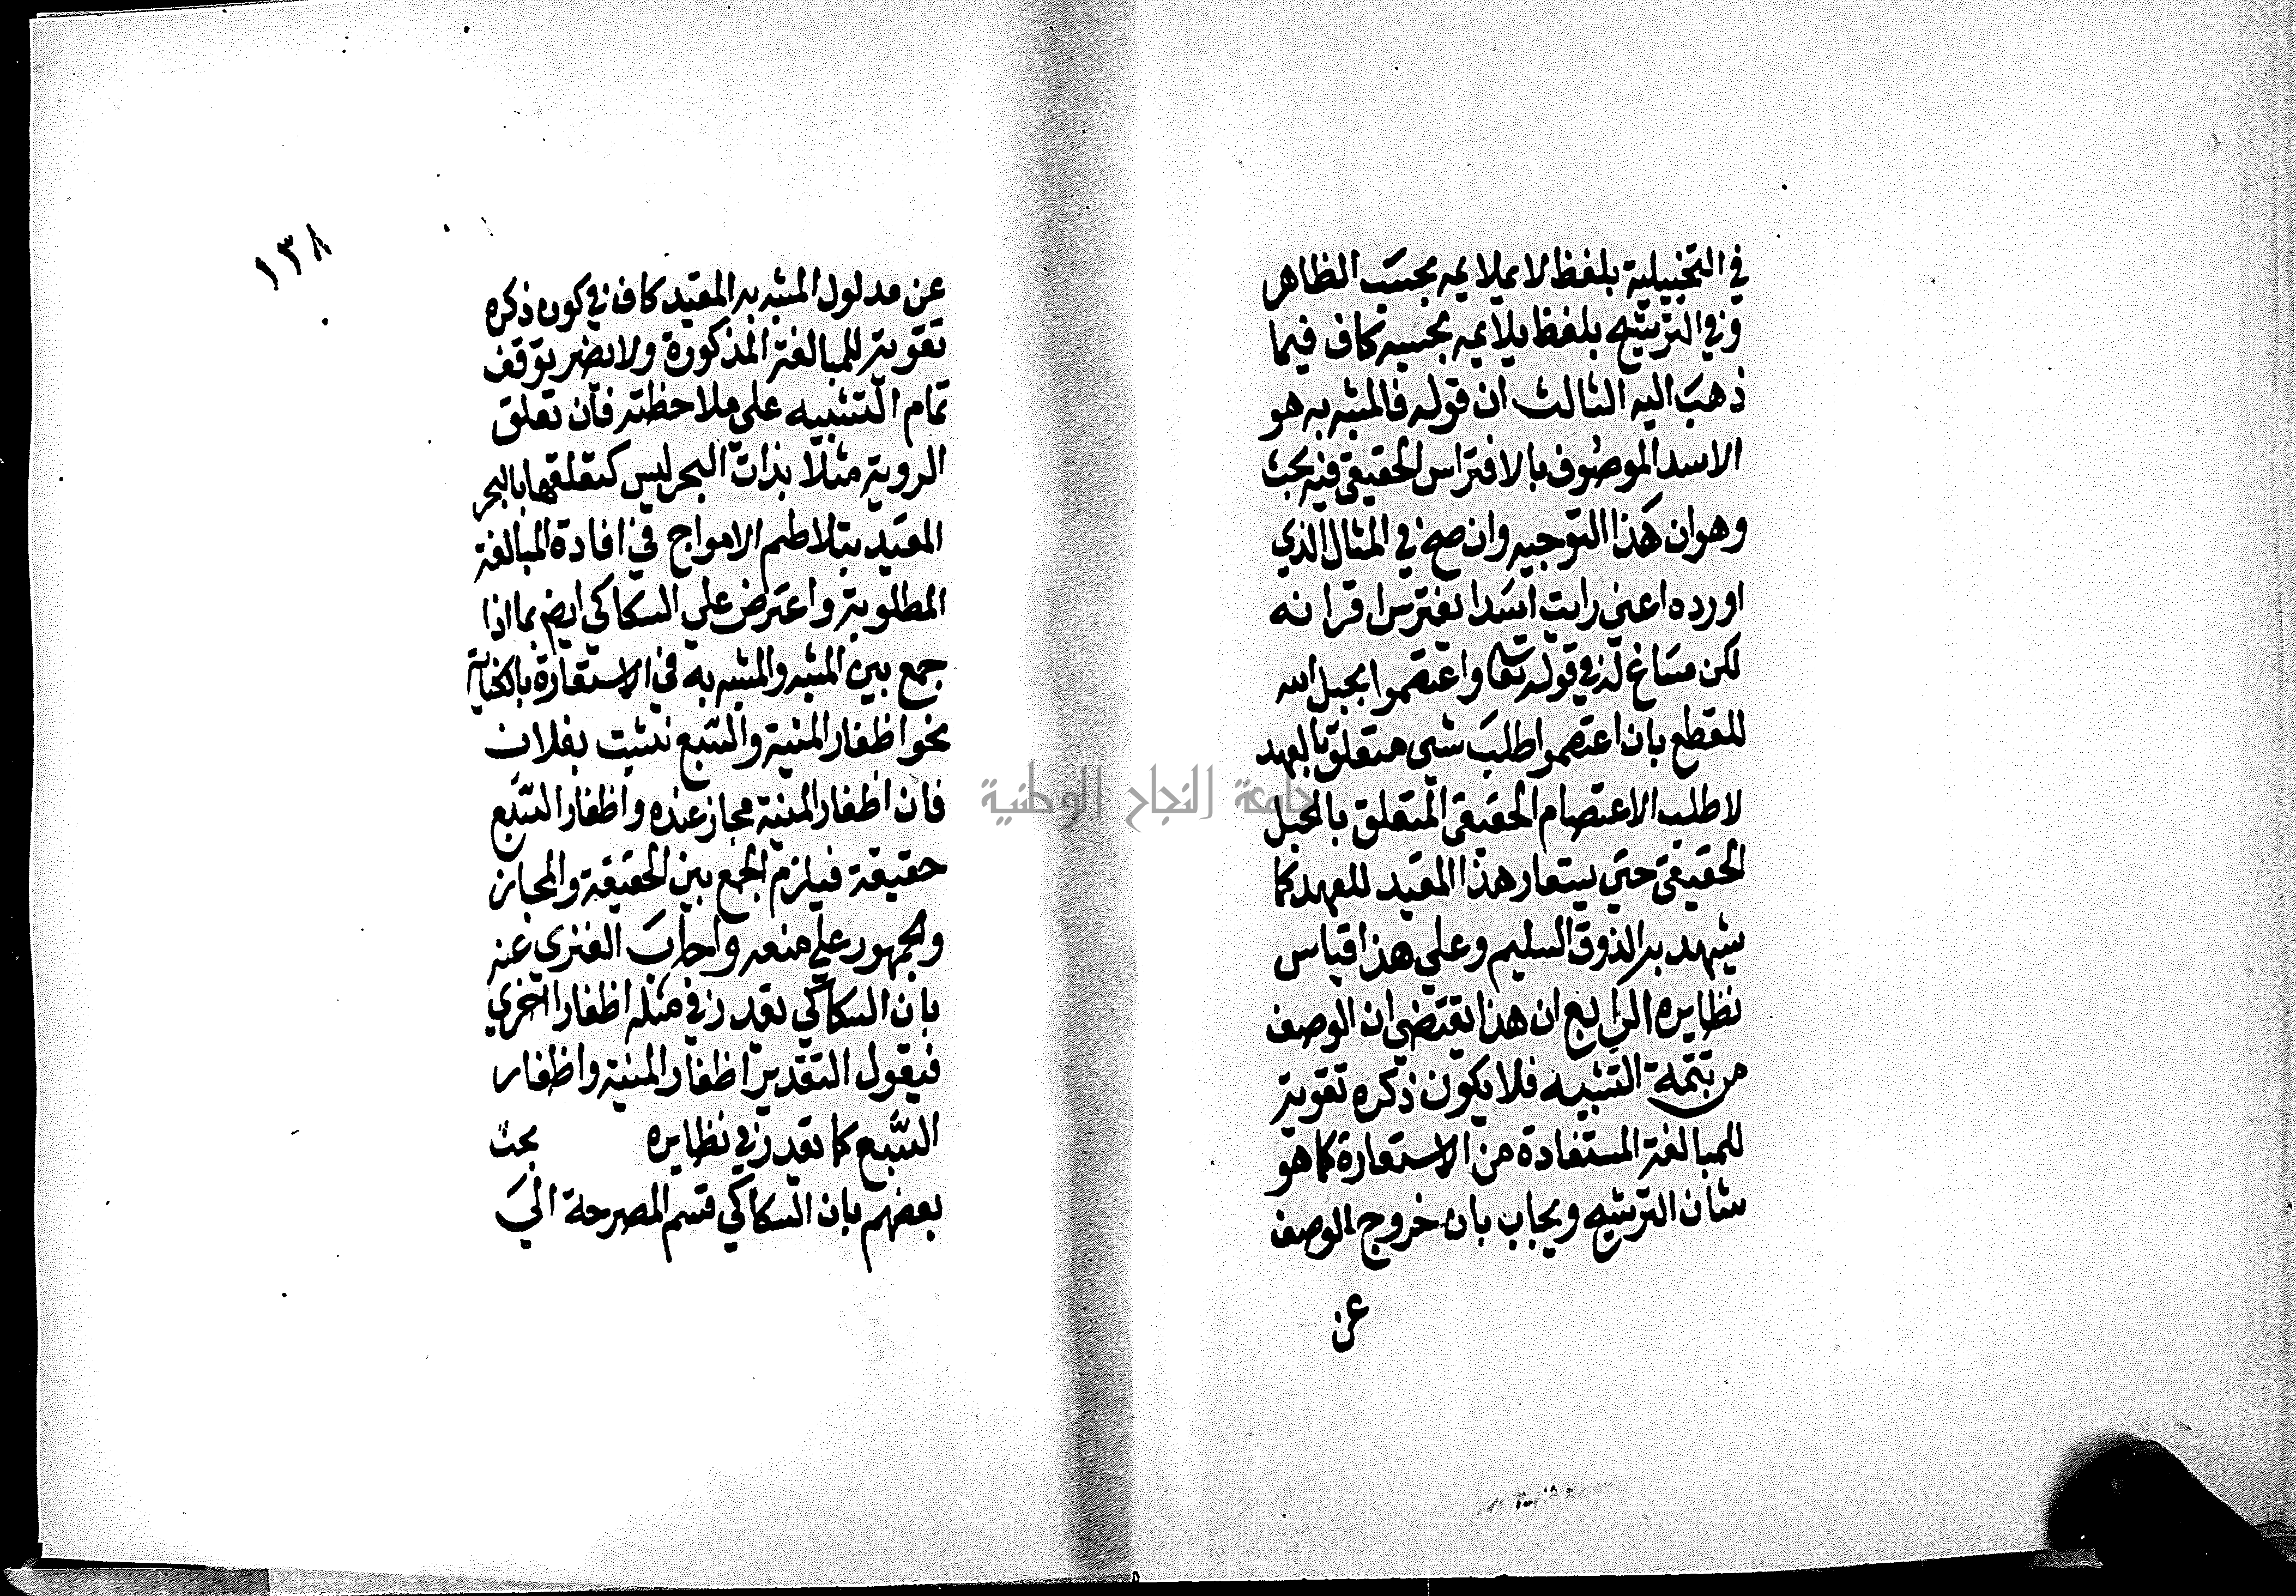 في التخييلية بلفظ لا يملايمه بحسب الظاهر
وفي الترشيح بلفظ يلايمه بحسبه كاف فيما
ذهب اليه الثالث ان قوله فالمشبه به هو
الاسد الموصوف بالافتراس الحقيقي فيه بحث
وهو ان هذا التوجيه وان صح في المثال الذي
اورده اعني رايت اسدا يفترس اقرانه
لكن مساغ له في قوله تعا واعتصموا بحبل الله
للقطع بان اعتصموا طلب شي متعلق بالعهد
لا طلب الاعتصام الحقيقي المتعلق بالحبل
الحقيقي حتي يستعار هذا المقيد للعهد كما
يشهد به الذوق السليم وعلي هذا قياس
نظايره الرابع ان هذا يقتضي ان الوصف
من تتمة التشبيه فلا يكون ذكره تقوية
للمبالغة المستفادة من الاستعارة كما هو
شان الترشيح ويجاب بان خروج الوصف
عن
١٣٨
عن مدلول المشبه به المقيد كاف في كون ذكره
تقوية للمبالغة المذكورة ولا يضر توقف
تمام التشبيه علي ملاحظته فان تعلق
الروية مثلا بذات البحر ليس كتعلقها بالبحر
المقيد بتلاطم الامواج في افادة المبالغة
المطلوبة واعترض علي السكاكي ايض بما اذا
جمع بين المشبه والمشبه به في الاستعارة بالكناية
نحو اظفار المنية والسبع نشبت بفلان
فان اظفار المنية مجاز عنده واظفار السبع
حقيقة فيلزم الجمع بين الحقيقة والمجاز
والجمهور علي منعه واجاب الفنري عنه
بان السكاكي يقدر في مثله اظفارا اخري
فيقول التقدير اظفار المنية واظفار
السبع كما يقدر في نظايره بحث
بعضهم بان السكاكي قسم المصرحة الي
جامعة النجاح الوطنية